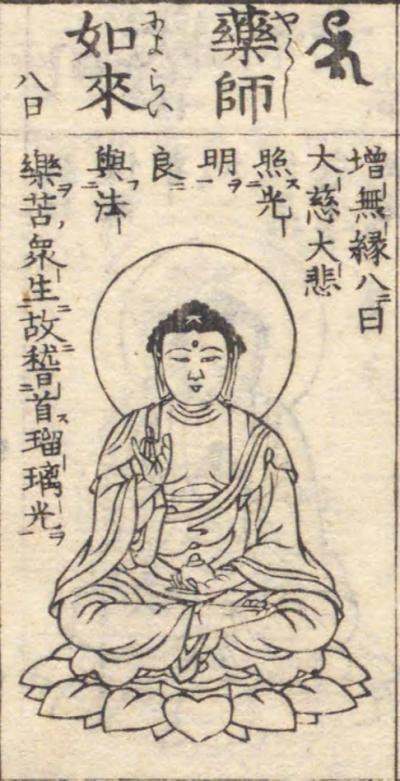 藥師
やくし
如來
によらい
八日
増無縁八日
大慈大悲
照光
明
良
與法
樂苦衆生故稽首瑠璃光